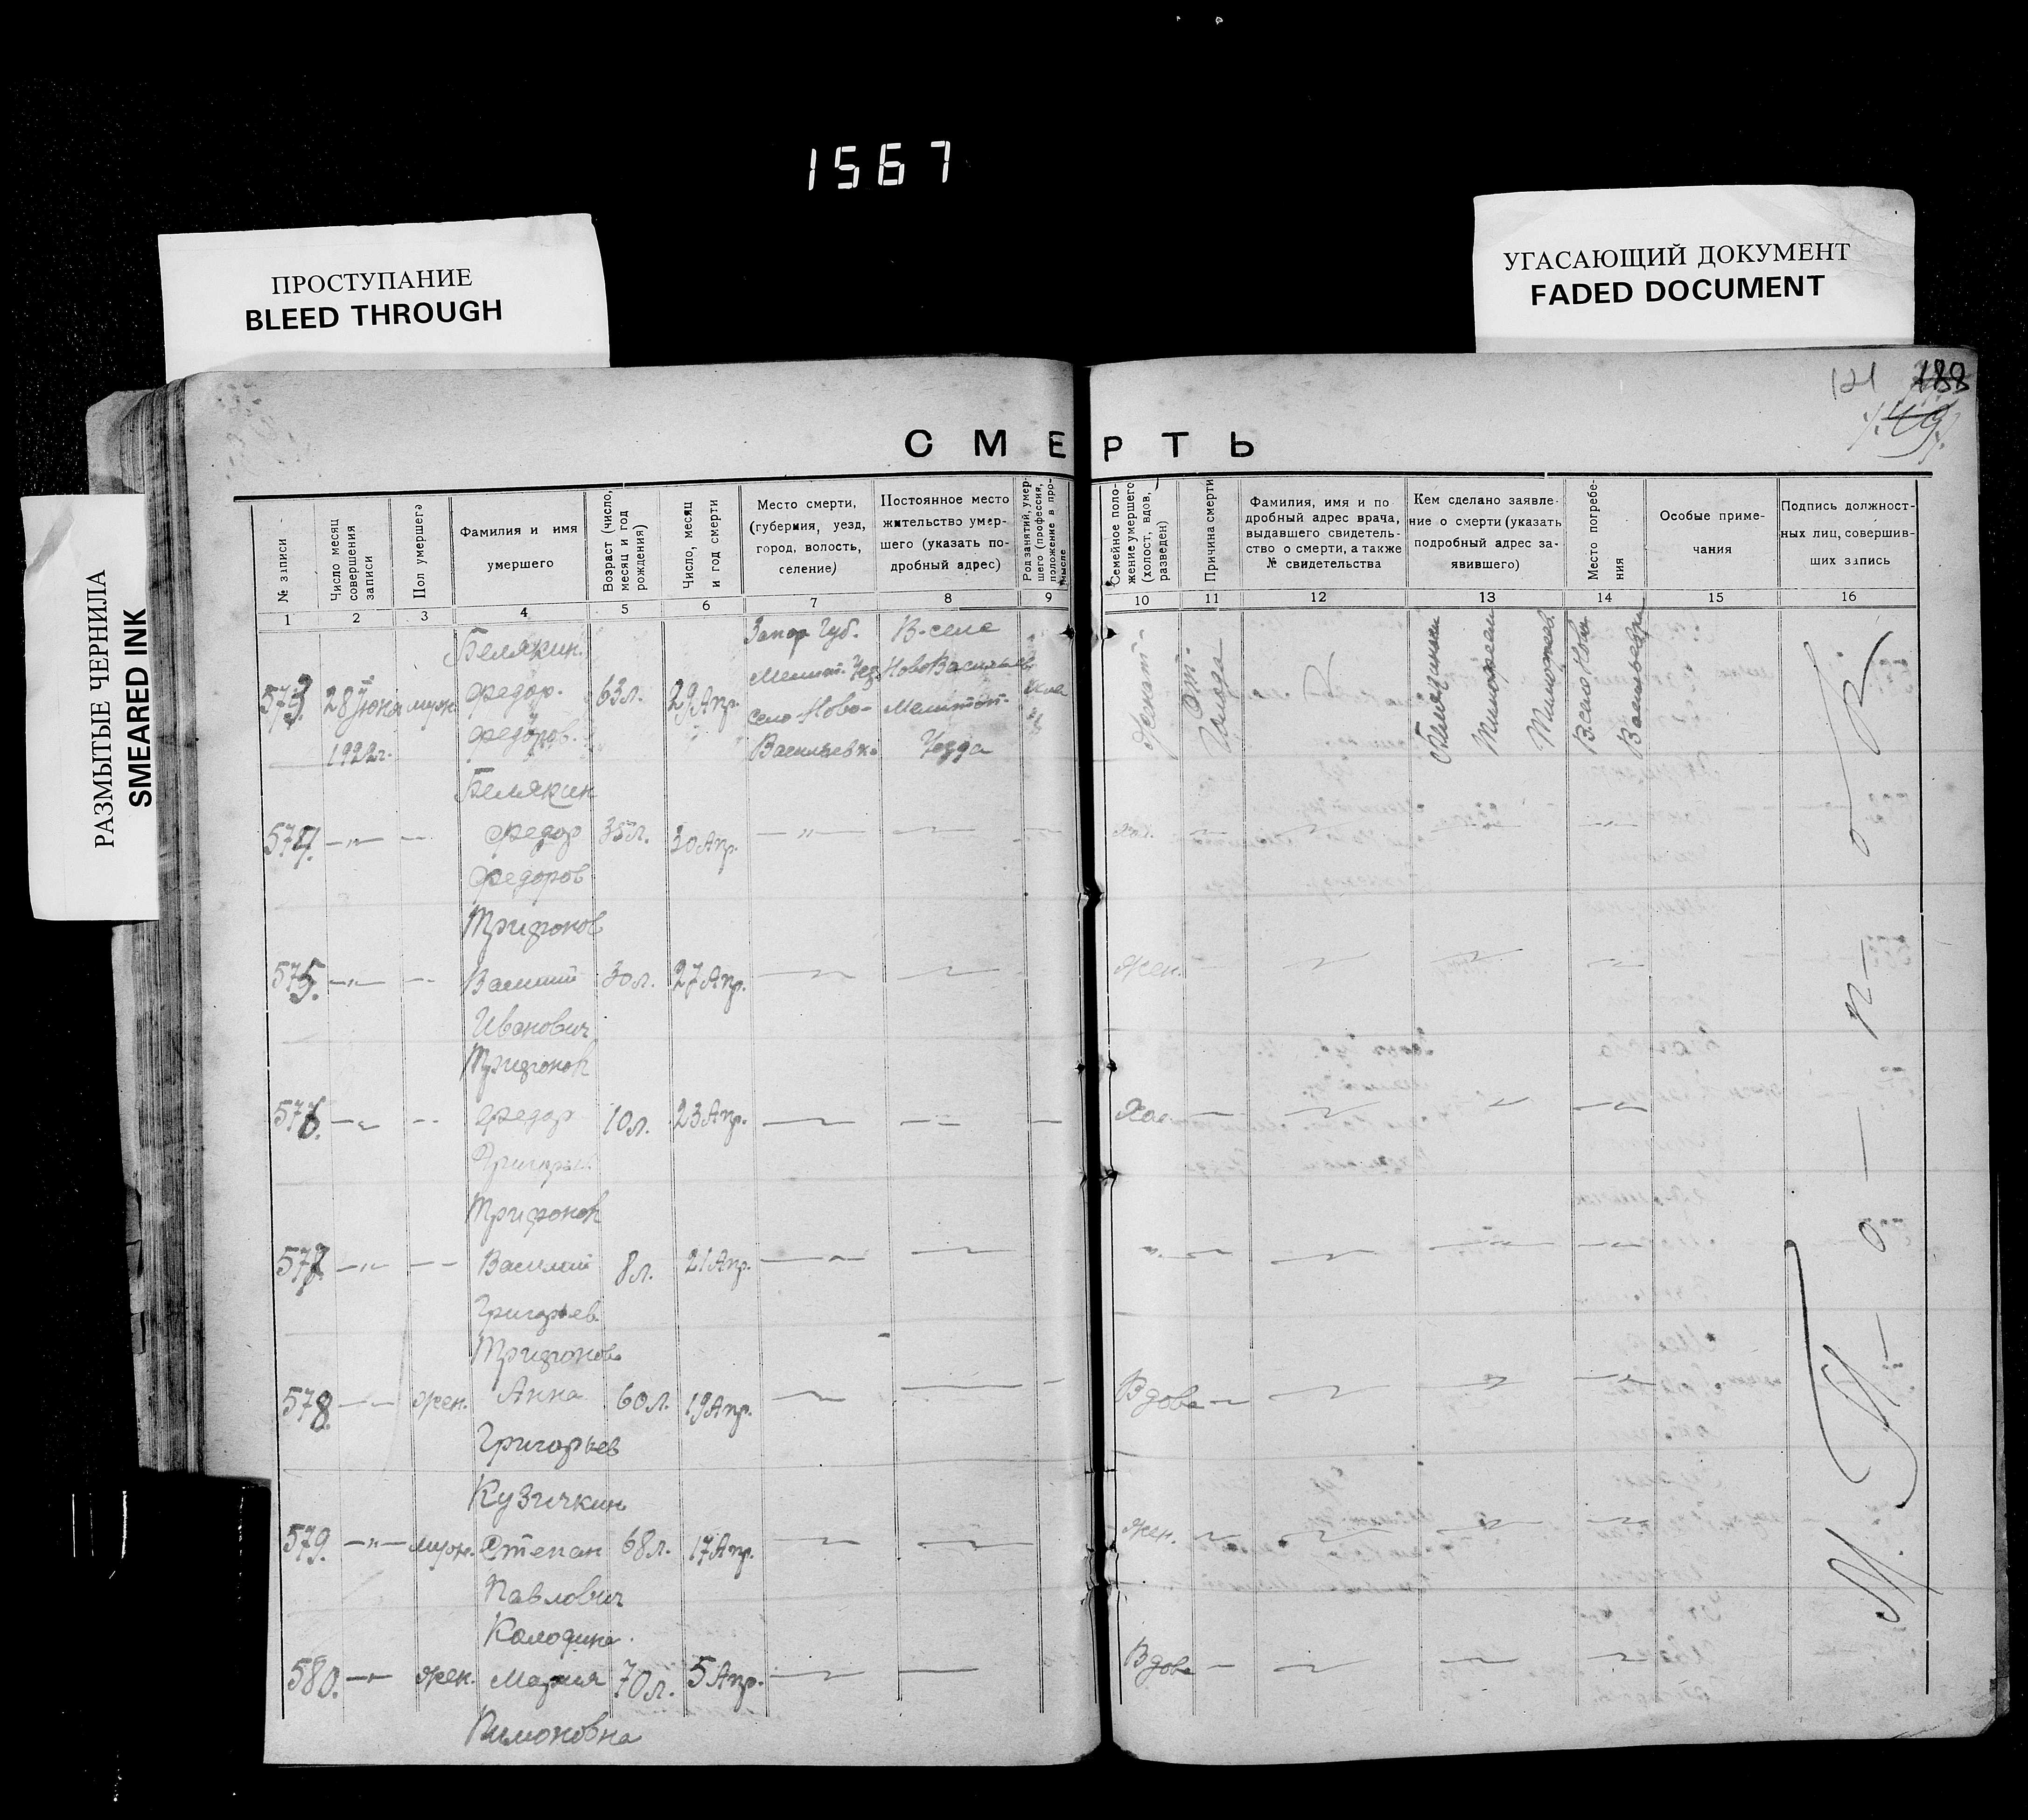 1567
ПРОСТУПАНИЕ
BLEED THROUGH
УГАСАЮЩИЙ ДОКУМЕНТ
FADED DOCUMENT
РАЗМЫТЫЕ ЧЕРНИЛА
SMEARED INK
121 188
СМЕРТЬ
№ записи
Число месяц совершения записи
Пол умершего
Фамилия и имя
умершего
Возраст (число, месяц и год рождения)
Число, месяц и год смерти
Место смерти,
(губерния, уезд,
город, волость,
селение)
Постоянное место
жительство умер-
шего (указать по-
дробный адрес)
Род занятий, умер-
шего (профессия,
положение в про-
мысле
Семейное поло-
жение умершего
(холост, вдов,
разведен)
Причина смерти
Фамилия, имя и по
дробный адрес врача,
выдавшего свидетель-
ство о смерти, а также
№ свидетельства
Кем сделано заявле-
ние о смерти (указать
подробный адрес за-
явившего)
Место погребе-
ния
Особые приме-
чания
Подпись должност-
ных лиц, совершив-
ших запись
1 2 3 4 5 6 7 8 9 10 11 12 13 14 15 16
Белякин
573 28 Июня муж. Федор. 63 л. 29 Апр.
Федоров.
1922 г.
Запор Губ.
Мелит. Уез.
село Ново-
Васильевк.
В. селе
Ново Василь
Мелитоп.
Уезда
Женат
От
голода
В. село Ново
Васильевка
Белякин
574. —"— Федор 35 л. 30 Апр. —"— Хол.
Федоров
Трифонов
575. —"— Василий 30 л. 27 Апр. Жен.
Иванович
Трифонов
576. Федор 10 л. 23 Апр. Хол.
Григорьев
Трифонов
577 —"— Василий 8 л. 21 Апр. "
Григорьев
Трифонова
578. жен. Анна 60 л. 19 Апр. Вдова
Григорьев
Кузичкин
579. —"— муж. Степан 68 л. 17 Апр. Жен.
Павлович
Колодина
580. —"— жен. Мария 70 л. 5 Апр. Вдова
Пимоновна